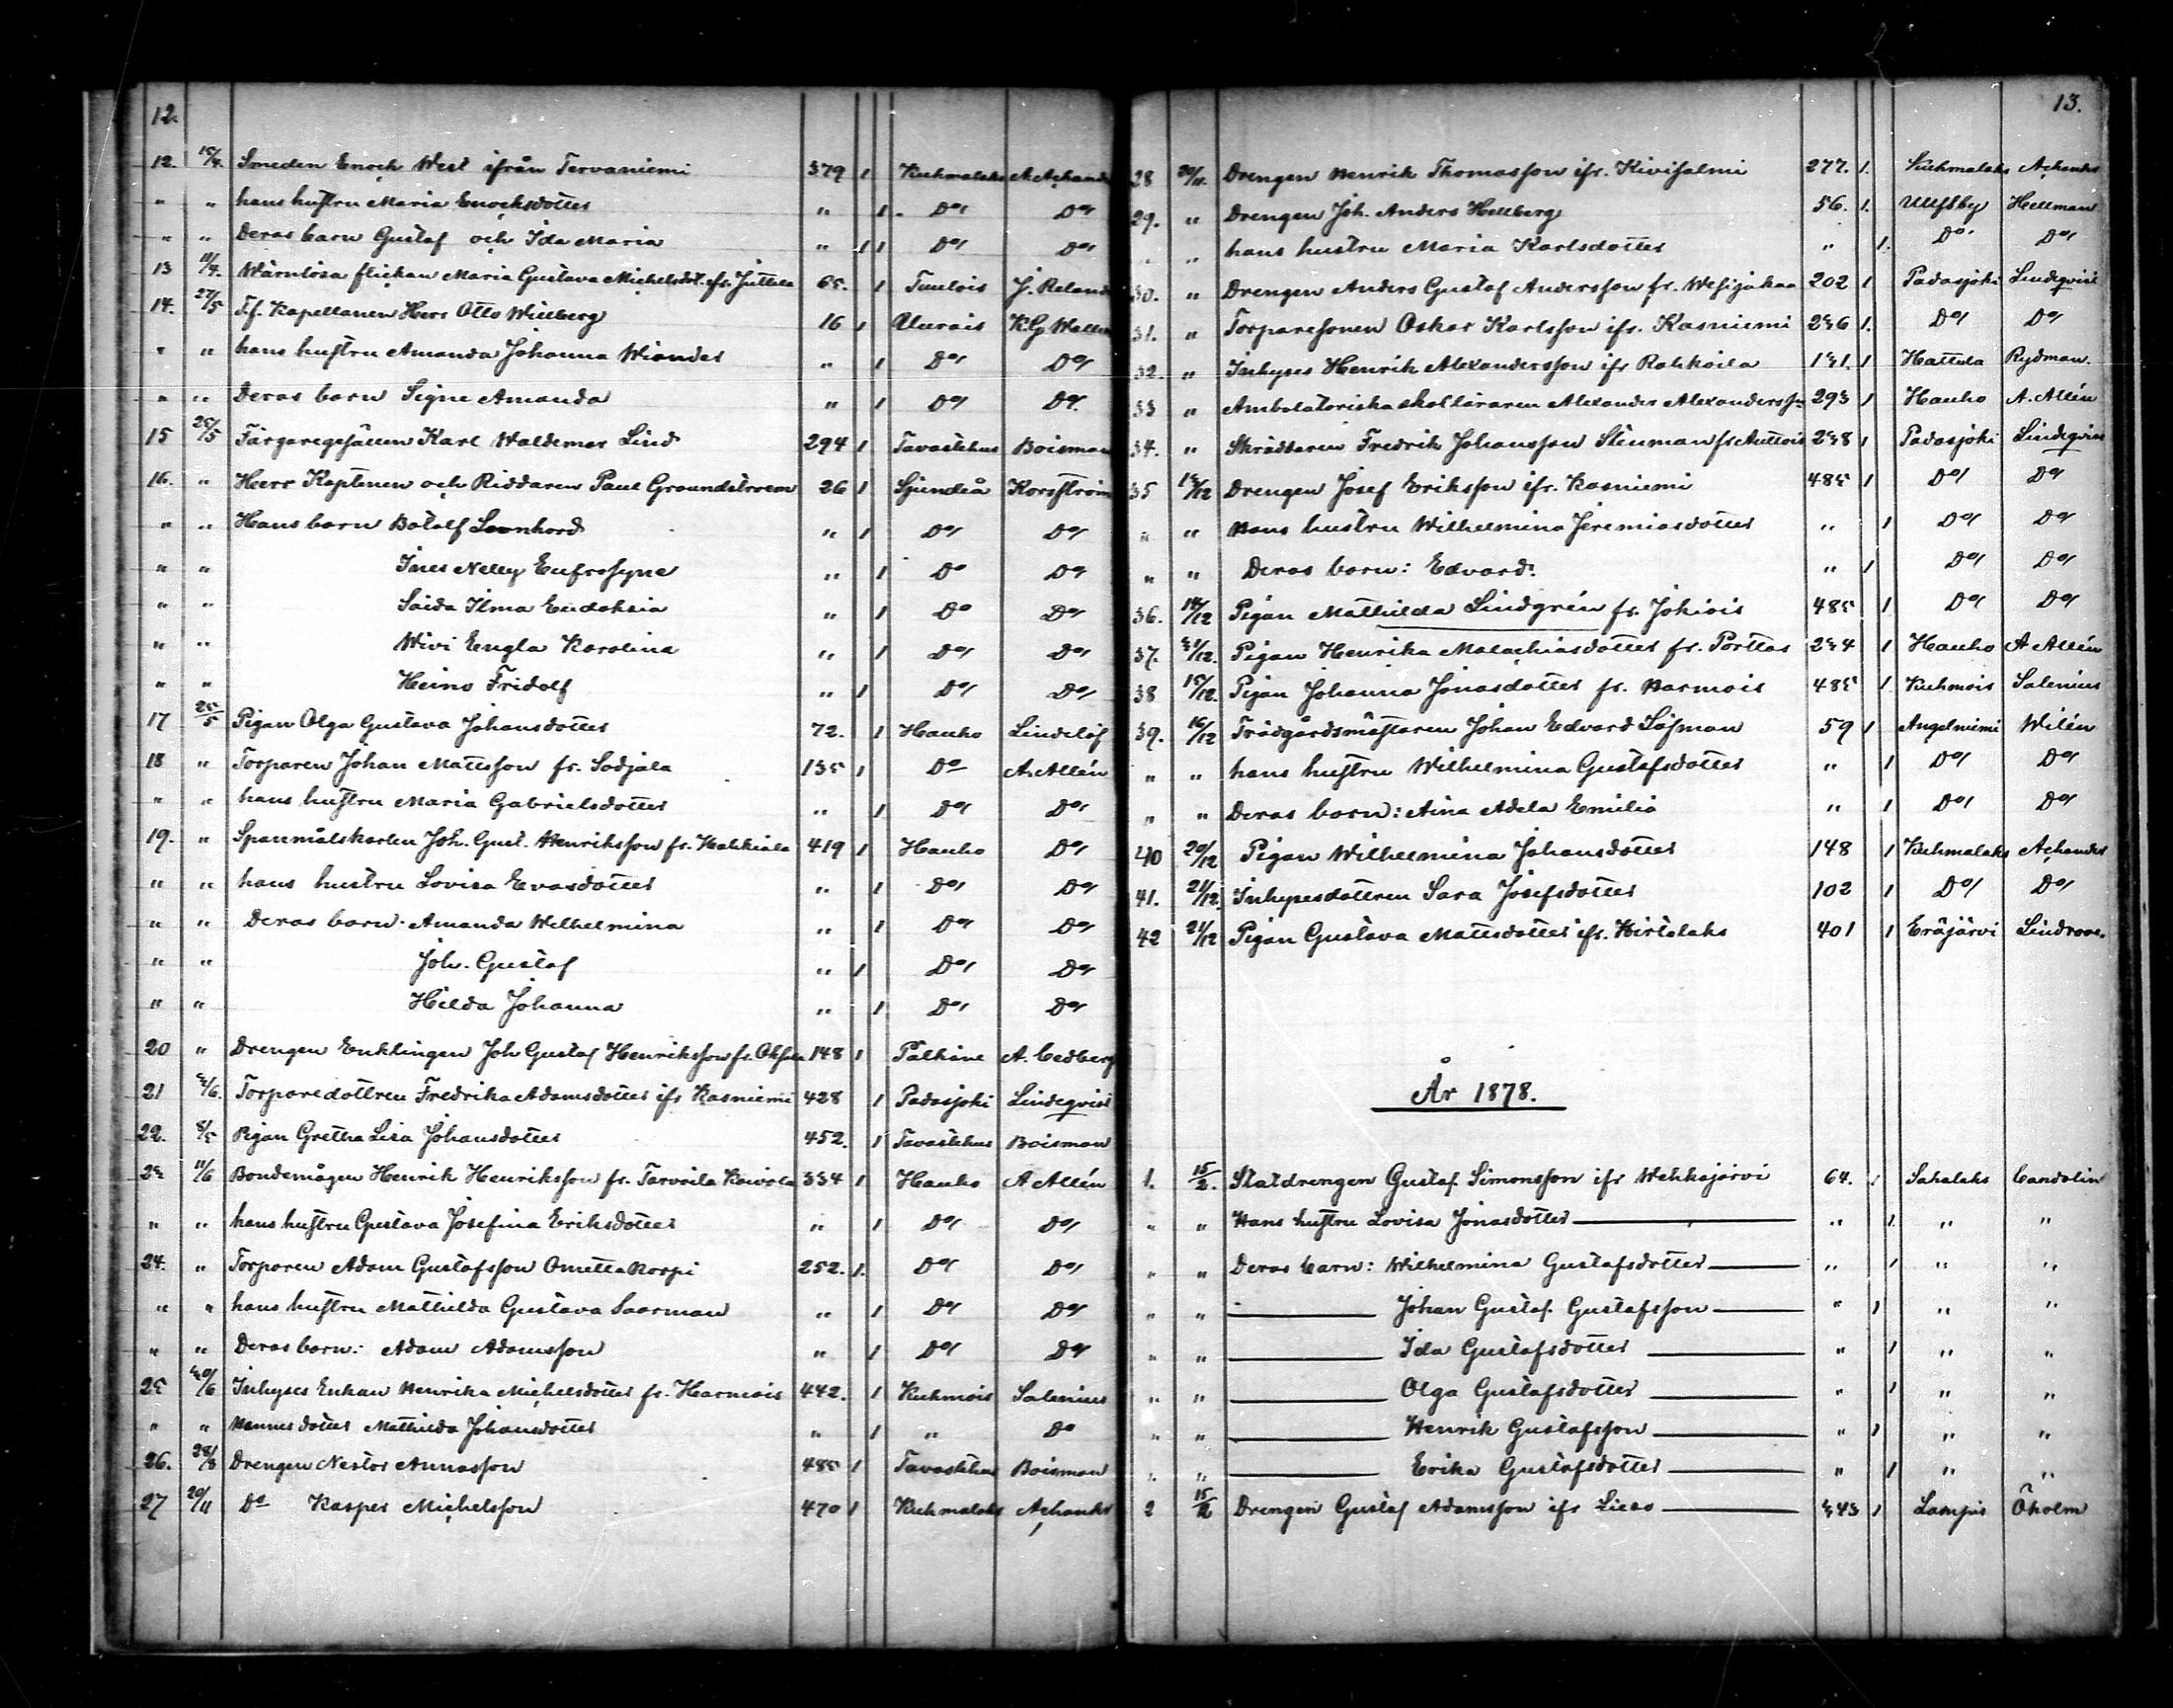 12.
12. 15/4. Smeden Enoch West ifrån Tervaniemi 379 1 Kuhmalaks A. Achander
" " hans hustru Maria Enochsdotter " 1. Do/ Do/
" " Deras barn Gustaf och Ida Maria " 1 1 Do/ Do/
13 11/4. Wärnlösa flickan Maria Gustava Michelsdot. ifr. Juttila 65. 1 Tuulois J. Relander
14. 27/5 T.f. Kapellanen Herr Otto Willberg 16 1 Alurais K.G. Wallen
" " hans hustru Amanda Johanna Wiander " 1 Do/ Do/
" " Deras barn Signe Amanda " 1 Do/ Do/.
15 25/5 Färgaregesällen Karl Waldemar Lind 294 1 Tavastehus Boisman
16. " Herr Kaptenen och Riddaren Paul Groundstroem 26 1 Sjundeå Korsström
" " Hans barn Botolf Leonhard " 1 Do/ Do/
" " Ines Nelly Eufrosyne " 1 Do Do/
" " Saida Ilma Eudoksia " 1 Do Do/
" " Wivi Engla Karolina " 1 Do/ Do/
" " Heino Fridolf " 1 Do/ Do/
17 25/5 Pigan Olga Gustava Johansdotter 72. 1 Hauho Lindelöf
18 " Torparen Johan Mattsson fr. Sodjala 135 1 Do A. Allén
" " hans hustru Maria Gabrielsdotter " 1 Do/ Do/
19. " Spanmålskarlen Joh. Gust. Henriksson fr. Hahkiala 419 1 Hauho Do/
" " hans hustru Lovisa Evasdotter " 1 Do/ Do/
" " Deras barn: Amanda Wilhelmina " 1 Do/ Do/
" " Joh. Gustaf " 1 Do/ Do/
" " Hilda Johanna " 1 Do/ Do/
20 " Drengen Enklingen Joh Gustaf Henriksson fr. 148 1 Pälkäne A. Cedberg
21 /6. Torparedottren Fredrika Adamsdotter ifr Kasniemi 428 1 Padasjoki Lindeqvist
22. 8/5 Pigan Gretha Lisa Johansdotter 452. 1 Tavastehus Boisman
23 11/6 Bondemågen Henrik Henriksson fr. Torvoila Koivola 334 1 Hauho A Allén
" " hans hustru Gustava Josefina Eriksdotter " 1 Do/ Do/
24. " Torparen Adam Gustafsson Ometta Korpi 252. 1. Do/ Do/
" " hans hustru Mathilda Gustava Saarman " 1 Do/ Do/
" " Deras barn: Adam Adamsson " 1 Do/ Do/
25 30/6 Inhyses Enkan Henrika Michelsdotter fr. Harmois 442. 1 Kuhmois Salenius
" " Hennes dotter Mathilda Johansdotter " 1 " Do
26. 28/8 Drengen Nestor Annasson 485 1 Tavastehus Boisman
27 20/11 Do Kasper Michelsson 470 1 Kuhmalaks Achander
13.
28 20/11. Drengen Henrik Thomasson ifr. Kivisalmi 277. 1. Kuhmalaks Achander
29. " Drengen Joh. Anders Hellberg 56. 1. Ulfsby Hellman
" " hans hustru Maria Karlsdotter " 1. Do/ Do/
30. " Drengen Anders Gustaf Andersson fr. Wesijakaa 202 1 Padasjoki Lindeqvist
31. " Torparesonen Oskar Karlsson ifr. Kasniemi 236 1. Do/ Do/
32. " Inhyses Henrik Alexandersson ifr Rahkoila 131. 1 Hattula Rydman.
33 " Ambulatoriska skolläraren Alexander Alexandersson 293 1 Hauho A. Allén
34. " Skräddaren Fredrik Johansson Stenman fr Auttois 238 1 Padasjoki Lindeqvist
35 13/12 Drengen Josef Eriksson ifr. Kasniemi 485 1 Do/ Do/
" " Hans hustru Wilhelmina Jeremiasdotter " 1 Do/ Do/
" " Deras barn: Edvard. " 1 Do/ Do/
36. 14/12 Pigan Mathilda Lindgrén fr. Jokiois 485 1 Do/ Do/
37. 31/12. Pigan Henrika Malachiasdotter fr. Porttas 234 1 Hauho A Allén
38 15/12. Pigan Johanna Jonasdotter fr. Harmois 485 1 Kuhmois Salenius
39. 16/12 Trädgårdsmästaren Johan Edvard Löfman 59 1 Angelniemi Wilén
" " hans hustru Wilhelmina Gustafsdotter " 1 Do/ Do/
" " Deras barn: Aina Adela Emilia " 1 Do/ Do/
40 20/12 Pigan Wilhelmina Johansdotter 148 1 Kuhmalaks Achander
41. 21/12. Inhysesdottren Sara Josefsdotter 102 1 Do/ Do/
42 21/12 Pigan Gustava Mattsdotter ifr. Wirtalaks 401 1 Eräjärvi Lindroos.
År 1878.
1. 15/2. Statdrengen Gustaf Simonsson ifr Wehkajärvi 64. 1 Sahalaks Candolin
" " Hans hustru Lovisa Jonasdotter " 1 " "
" " Deras barn: Wilhelmina Gustafsdotter " 1 " "
" " Johan Gustaf Gustafsson " 1 " "
" " Ida Gustafsdotter " 1 " "
" " Olga Gustafsdotter " 1 " "
" " Henrik Gustafsson " 1 " "
" " Erika Gustafsdotter " 1 " "
2 15/2 Drengen Gustaf Adamsson ifr Lieso 343 1 Lampis Öholm